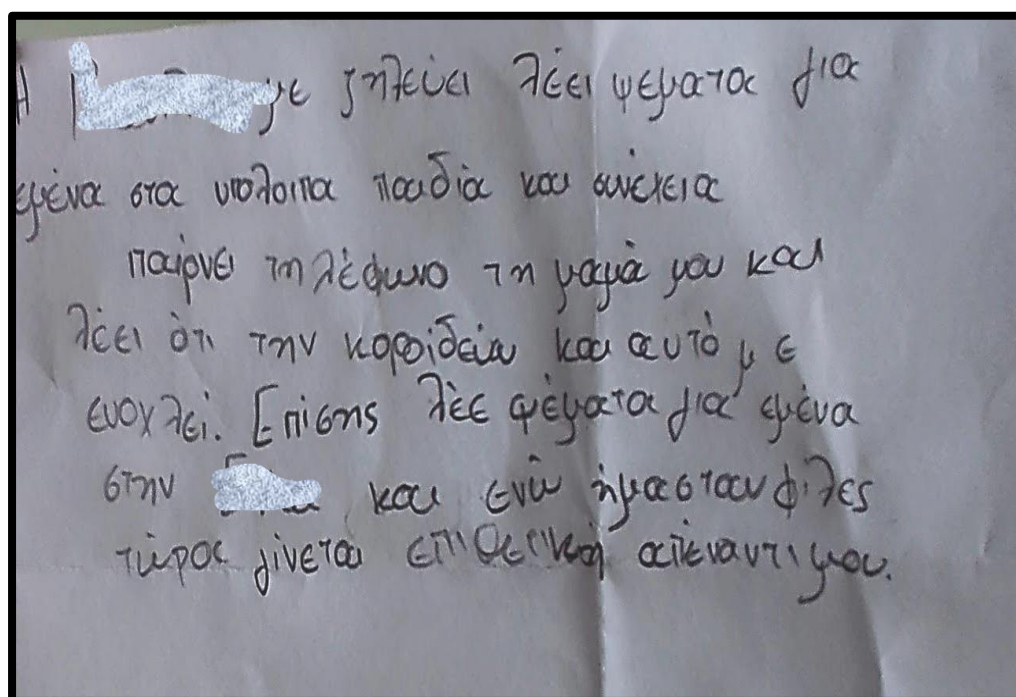 Η με ζηλεύει λέει ψεματα για
εμένα στα υπολοιπα παιδιά και συνέχεια
παίρνει τηλέφωνο τη μαμά μου και
λέει ότι την κοροϊδεύω και αυτό με
ενοχλεί. Επίσης λέει ψέματα για εμένα
στην και ενώ ήμασταν φίλες
τώρα γίνεται επιθετική απέναντι μου.